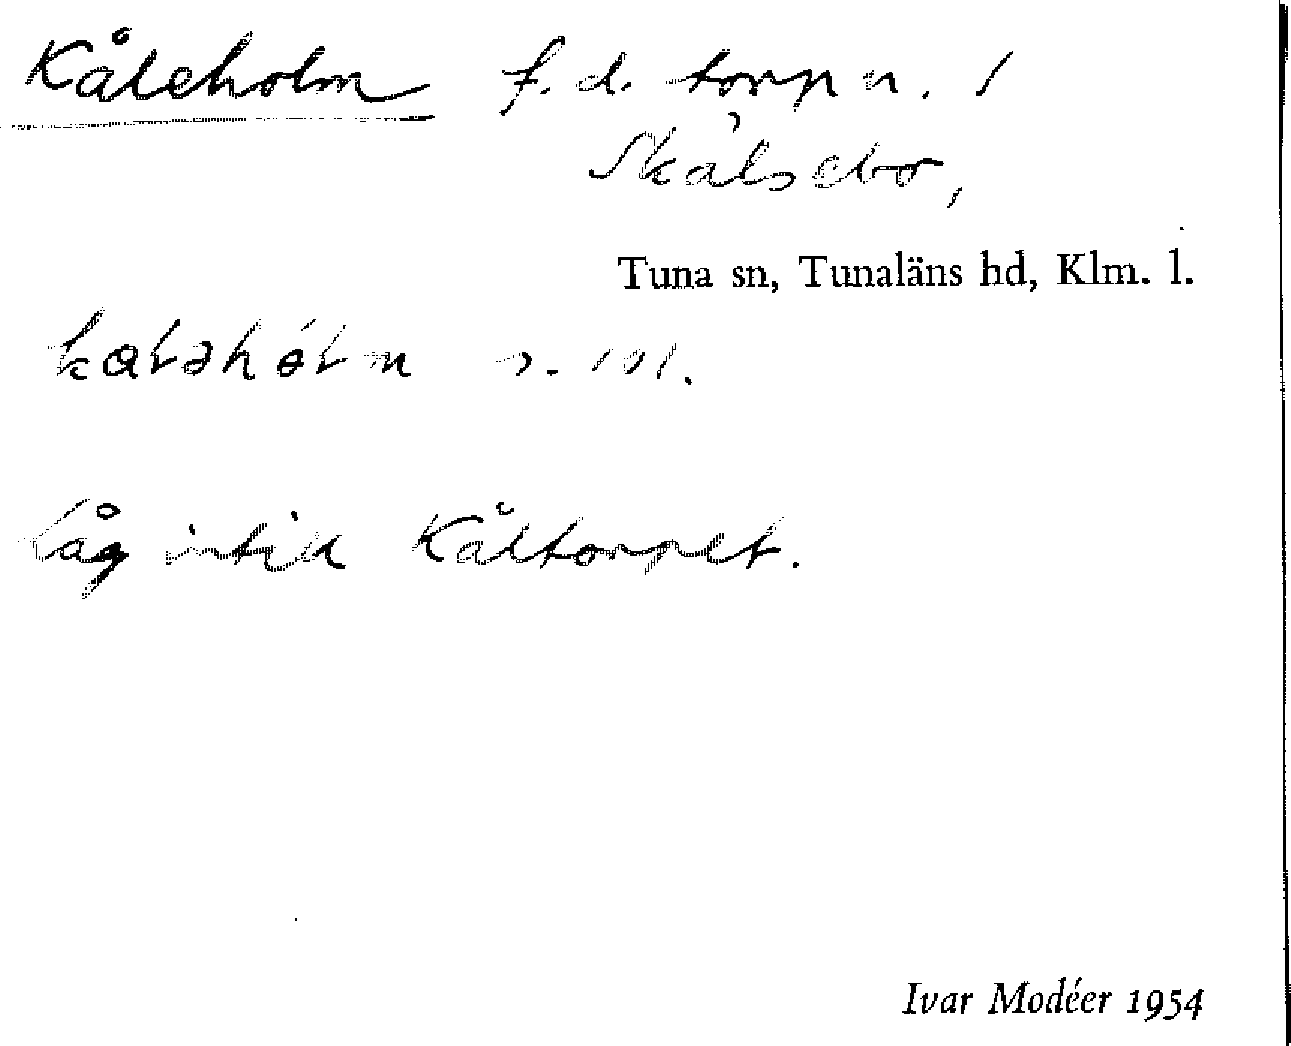 Kåleholm f.d. torp u. 1
Skålsebo,
Tuna sn, Tunaläns hd, Klm. l.
låg intill Kåltorpet.
Ivar Modéer 1954